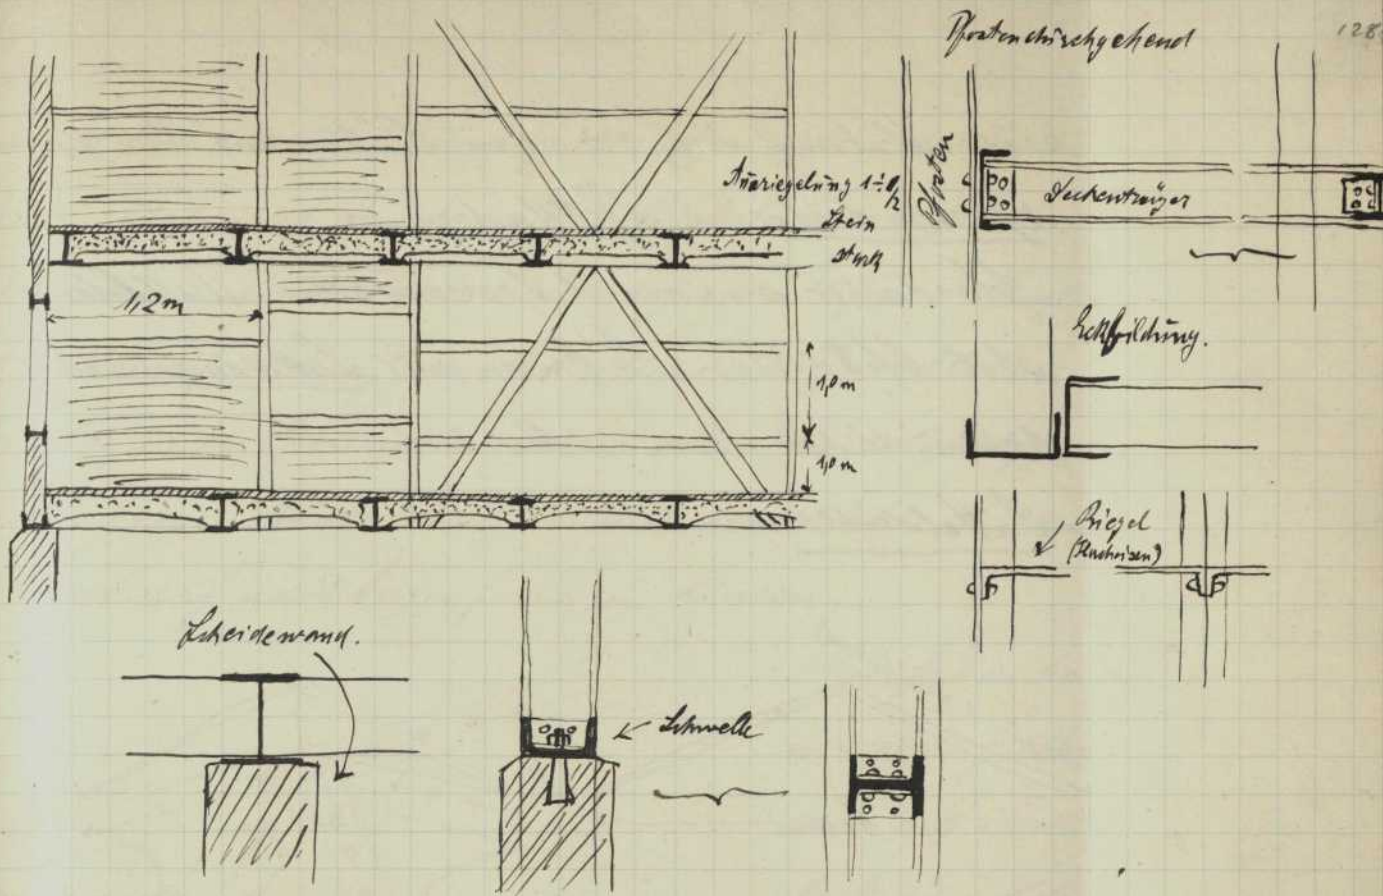 Pfosten durchgehend
128
Ausriegelung 1 ÷ 1/2
Stein
stark
Pfosten
Deckenträger
1,2 m
Eckbildung.
1,0 m
1,0 m
Riegel
(Flacheisen)
Scheidewand.
Schwelle